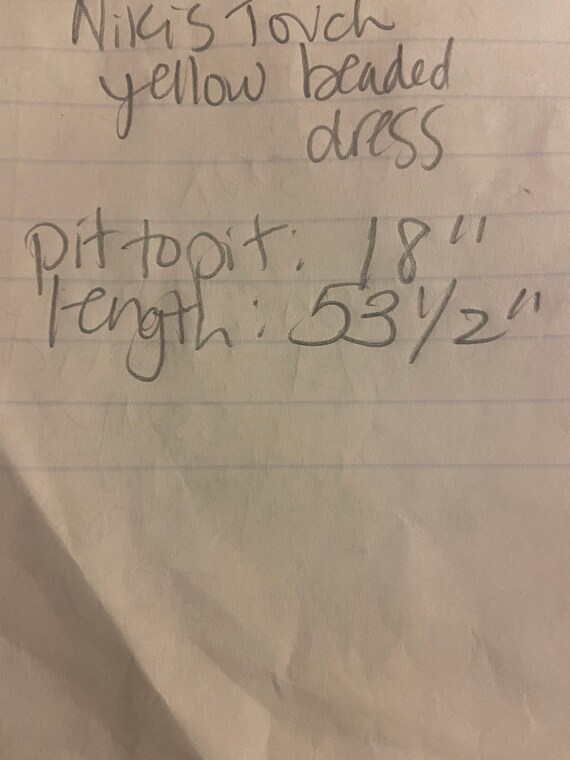 Niki's Touch
yellow beaded
dress
pit to pit: 18"
length: 53 1/2"